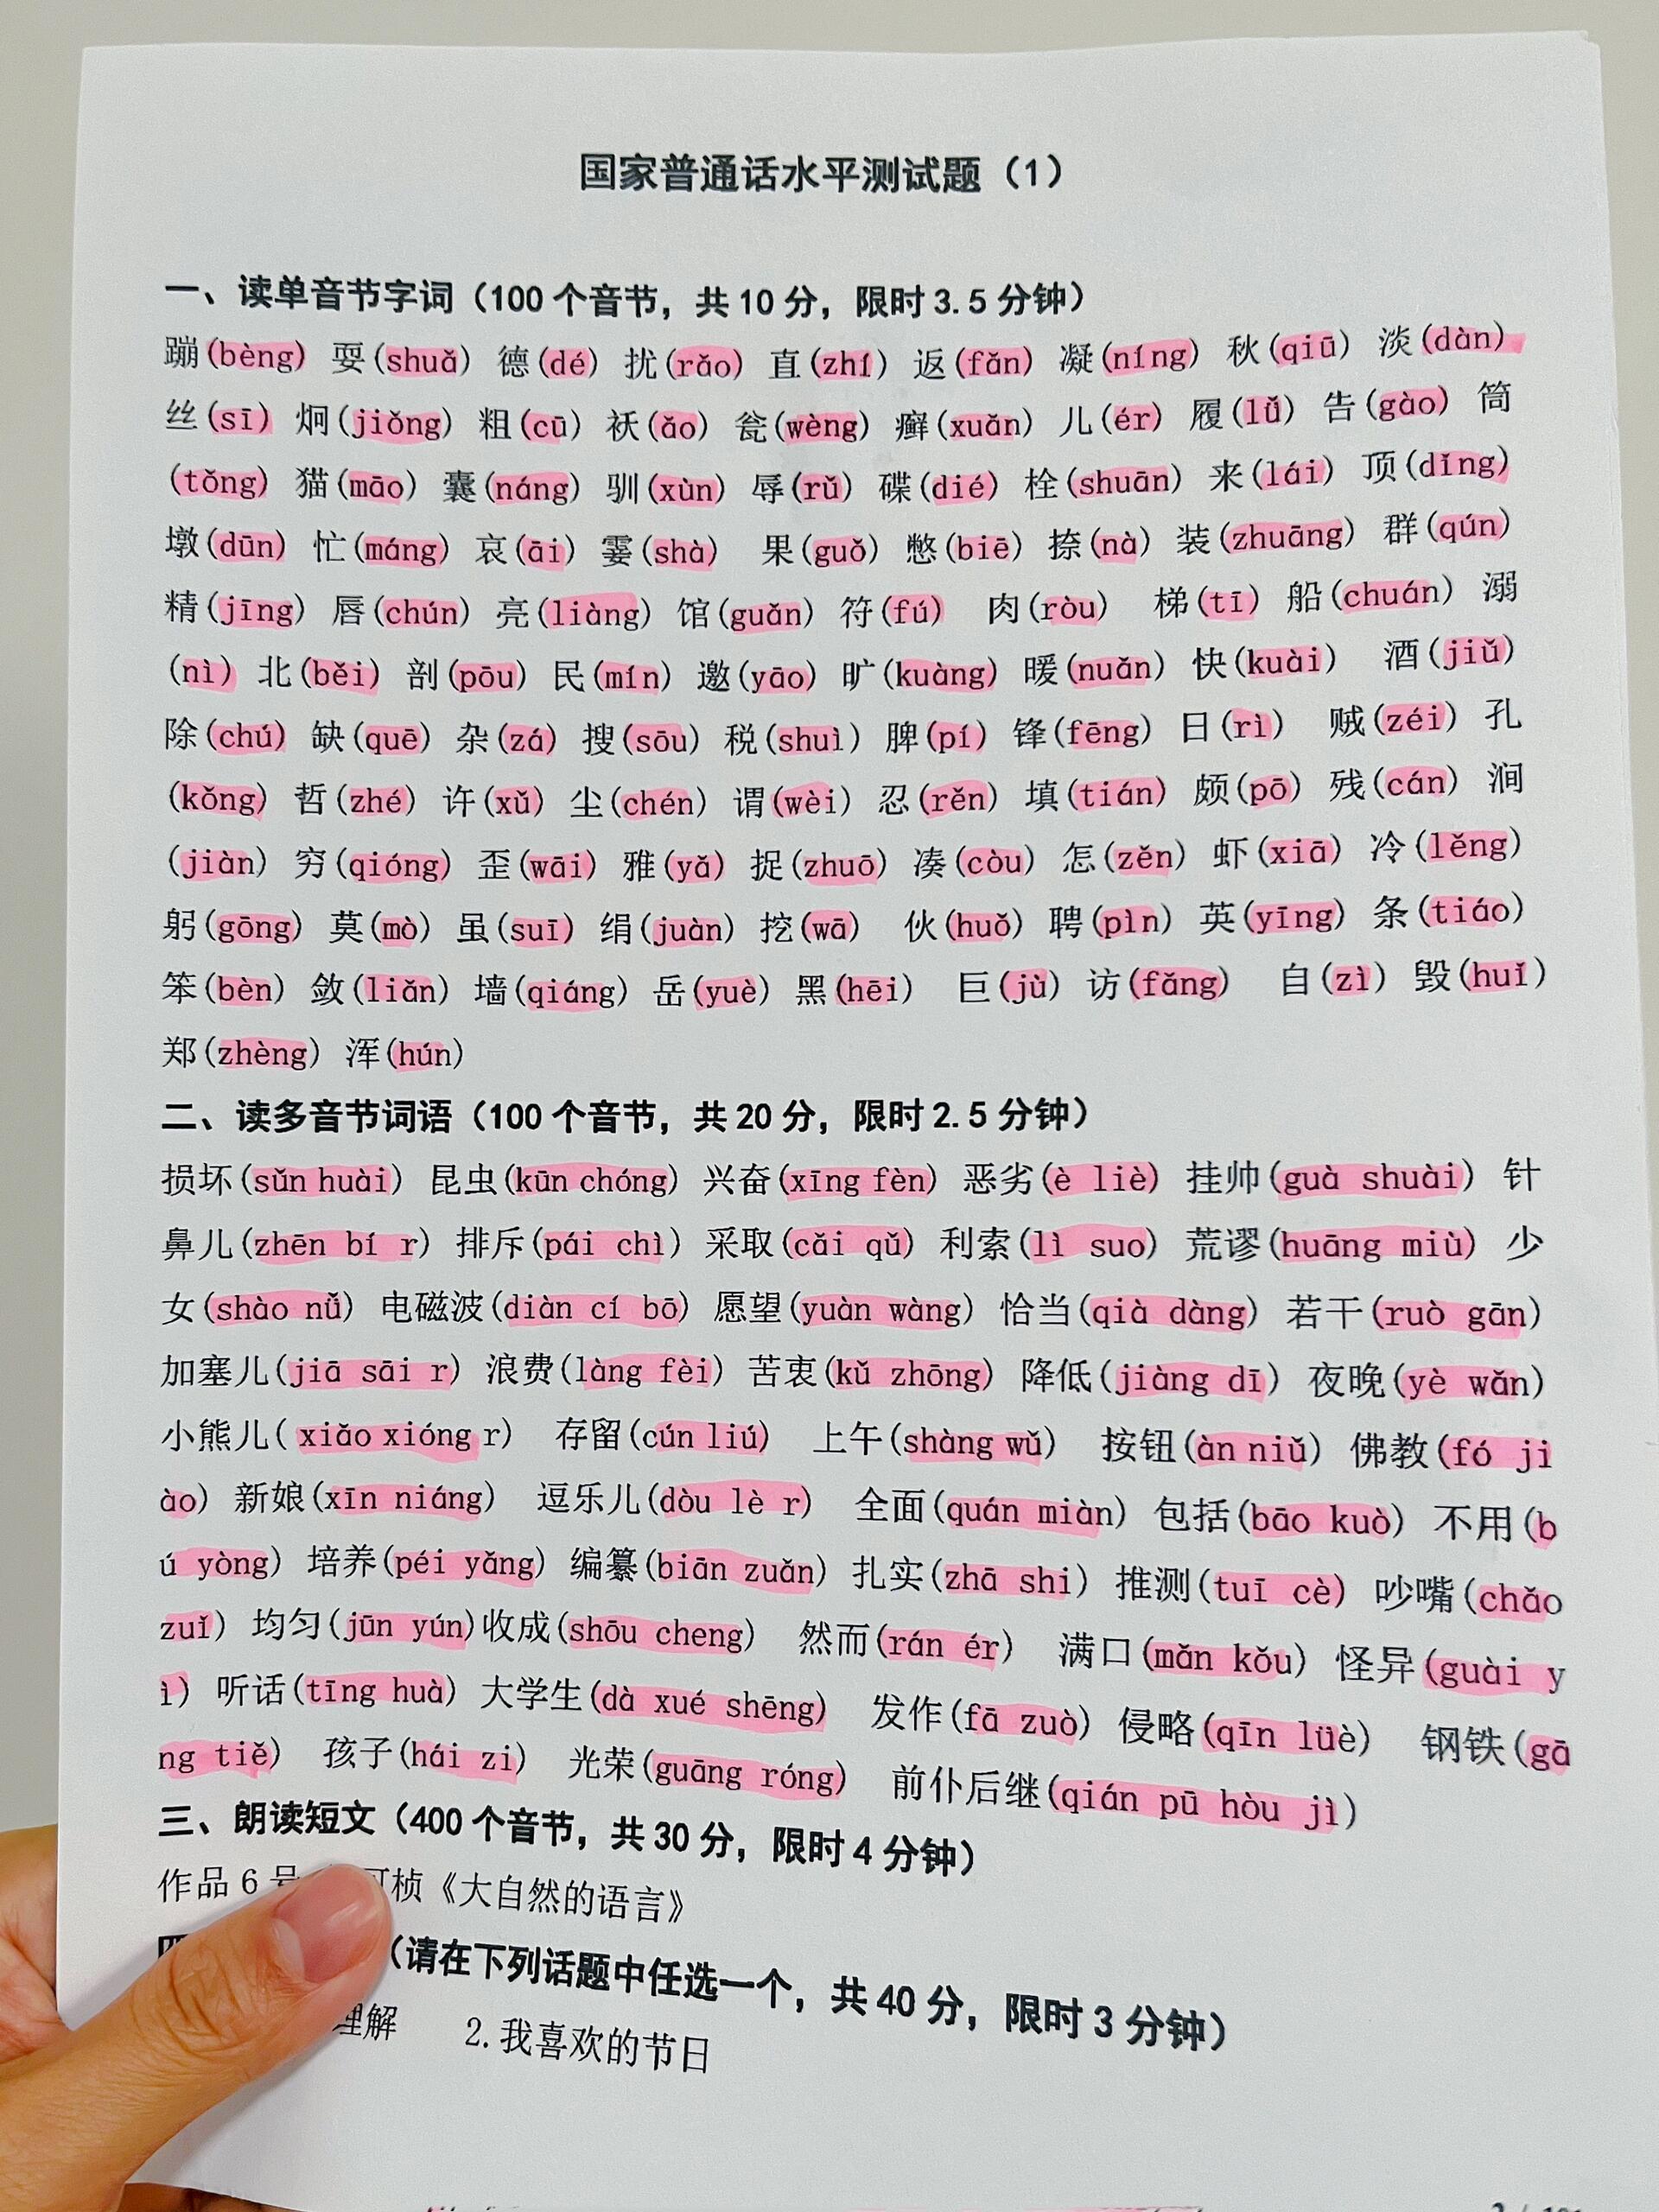 国家普通话水平测试题（1）
一、读单音节字词（100 个音节，共 10 分，限时 3.5 分钟）
蹦(bèng) 耍(shuǎ) 德(dé) 扰(rǎo) 直(zhí) 返(fǎn) 凝(níng) 秋(qiū) 淡(dàn)
丝(sī) 炯(jiǒng) 粗(cū) 袄(ǎo) 瓮(wèng) 癣(xuǎn) 儿(ér) 履(lǚ) 告(gào) 筒
(tǒng) 猫(māo) 囊(náng) 驯(xùn) 辱(rǔ) 碟(dié) 栓(shuān) 来(lái) 顶(dǐng)
墩(dūn) 忙(máng) 哀(āi) 霎(shà) 果(guǒ) 憋(biē) 捺(nà) 装(zhuāng) 群(qún)
精(jīng) 唇(chún) 亮(liàng) 馆(guǎn) 符(fú) 肉(ròu) 梯(tī) 船(chuán) 溺
(nì) 北(běi) 剖(pōu) 民(mín) 邀(yāo) 旷(kuàng) 暖(nuǎn) 快(kuài) 酒(jiǔ)
除(chú) 缺(quē) 杂(zá) 搜(sōu) 税(shuì) 脾(pí) 锋(fēng) 日(rì) 贼(zéi) 孔
(kǒng) 哲(zhé) 许(xǔ) 尘(chén) 谓(wèi) 忍(rěn) 填(tián) 颇(pō) 残(cán) 涧
(jiàn) 穷(qióng) 歪(wāi) 雅(yǎ) 捉(zhuō) 凑(còu) 怎(zěn) 虾(xiā) 冷(lěng)
躬(gōng) 莫(mò) 虽(suī) 绢(juàn) 挖(wā) 伙(huǒ) 聘(pìn) 英(yīng) 条(tiáo)
笨(bèn) 敛(liǎn) 墙(qiáng) 岳(yuè) 黑(hēi) 巨(jù) 访(fǎng) 自(zì) 毁(huǐ)
郑(zhèng) 浑(hún)
二、读多音节词语（100 个音节，共 20 分，限时 2.5 分钟）
损坏(sǔn huài) 昆虫(kūn chóng) 兴奋(xīng fèn) 恶劣(è liè) 挂帅(guà shuài) 针
鼻儿(zhēn bí r) 排斥(pái chì) 采取(cǎi qǔ) 利索(lì suo) 荒谬(huāng miù) 少
女(shào nǚ) 电磁波(diàn cí bō) 愿望(yuàn wàng) 恰当(qià dàng) 若干(ruò gān)
加塞儿(jiā sāi r) 浪费(làng fèi) 苦衷(kǔ zhōng) 降低(jiàng dī) 夜晚(yè wǎn)
小熊儿( xiǎo xióng r) 存留(cún liú) 上午(shàng wǔ) 按钮(àn niǔ) 佛教(fó ji
ào) 新娘(xīn niáng) 逗乐儿(dòu lè r) 全面(quán miàn) 包括(bāo kuò) 不用(b
ú yòng) 培养(péi yǎng) 编纂(biān zuǎn) 扎实(zhā shi) 推测(tuī cè) 吵嘴(chǎo
zuǐ) 均匀(jūn yún)收成(shōu cheng) 然而(rán ér) 满口(mǎn kǒu) 怪异(guài y
ì) 听话(tīng huà) 大学生(dà xué shēng) 发作(fā zuò) 侵略(qīn lüè) 钢铁(gā
ng tiě) 孩子(hái zi) 光荣(guāng róng) 前仆后继(qián pū hòu jì)
三、朗读短文（400 个音节，共 30 分，限时 4 分钟）
作品 6 号 桢《大自然的语言》
（请在下列话题中任选一个，共 40 分，限时 3 分钟）
理解 2.我喜欢的节日